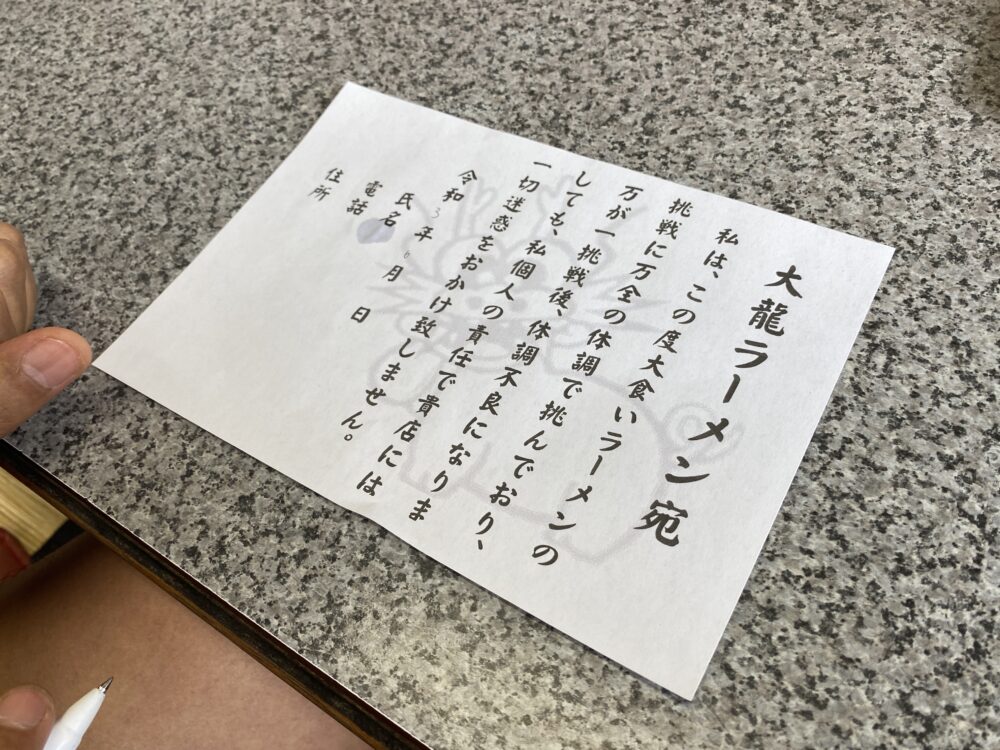 大龍ラーメン宛
私は、この度大食いラーメンの
挑戦に万全の体調で挑んでおり、
万が一挑戦後、体調不良になりま
しても、私個人の責任で貴店には
一切迷惑をおかけ致しません。
令和3年6月 日
氏名
電話
住所